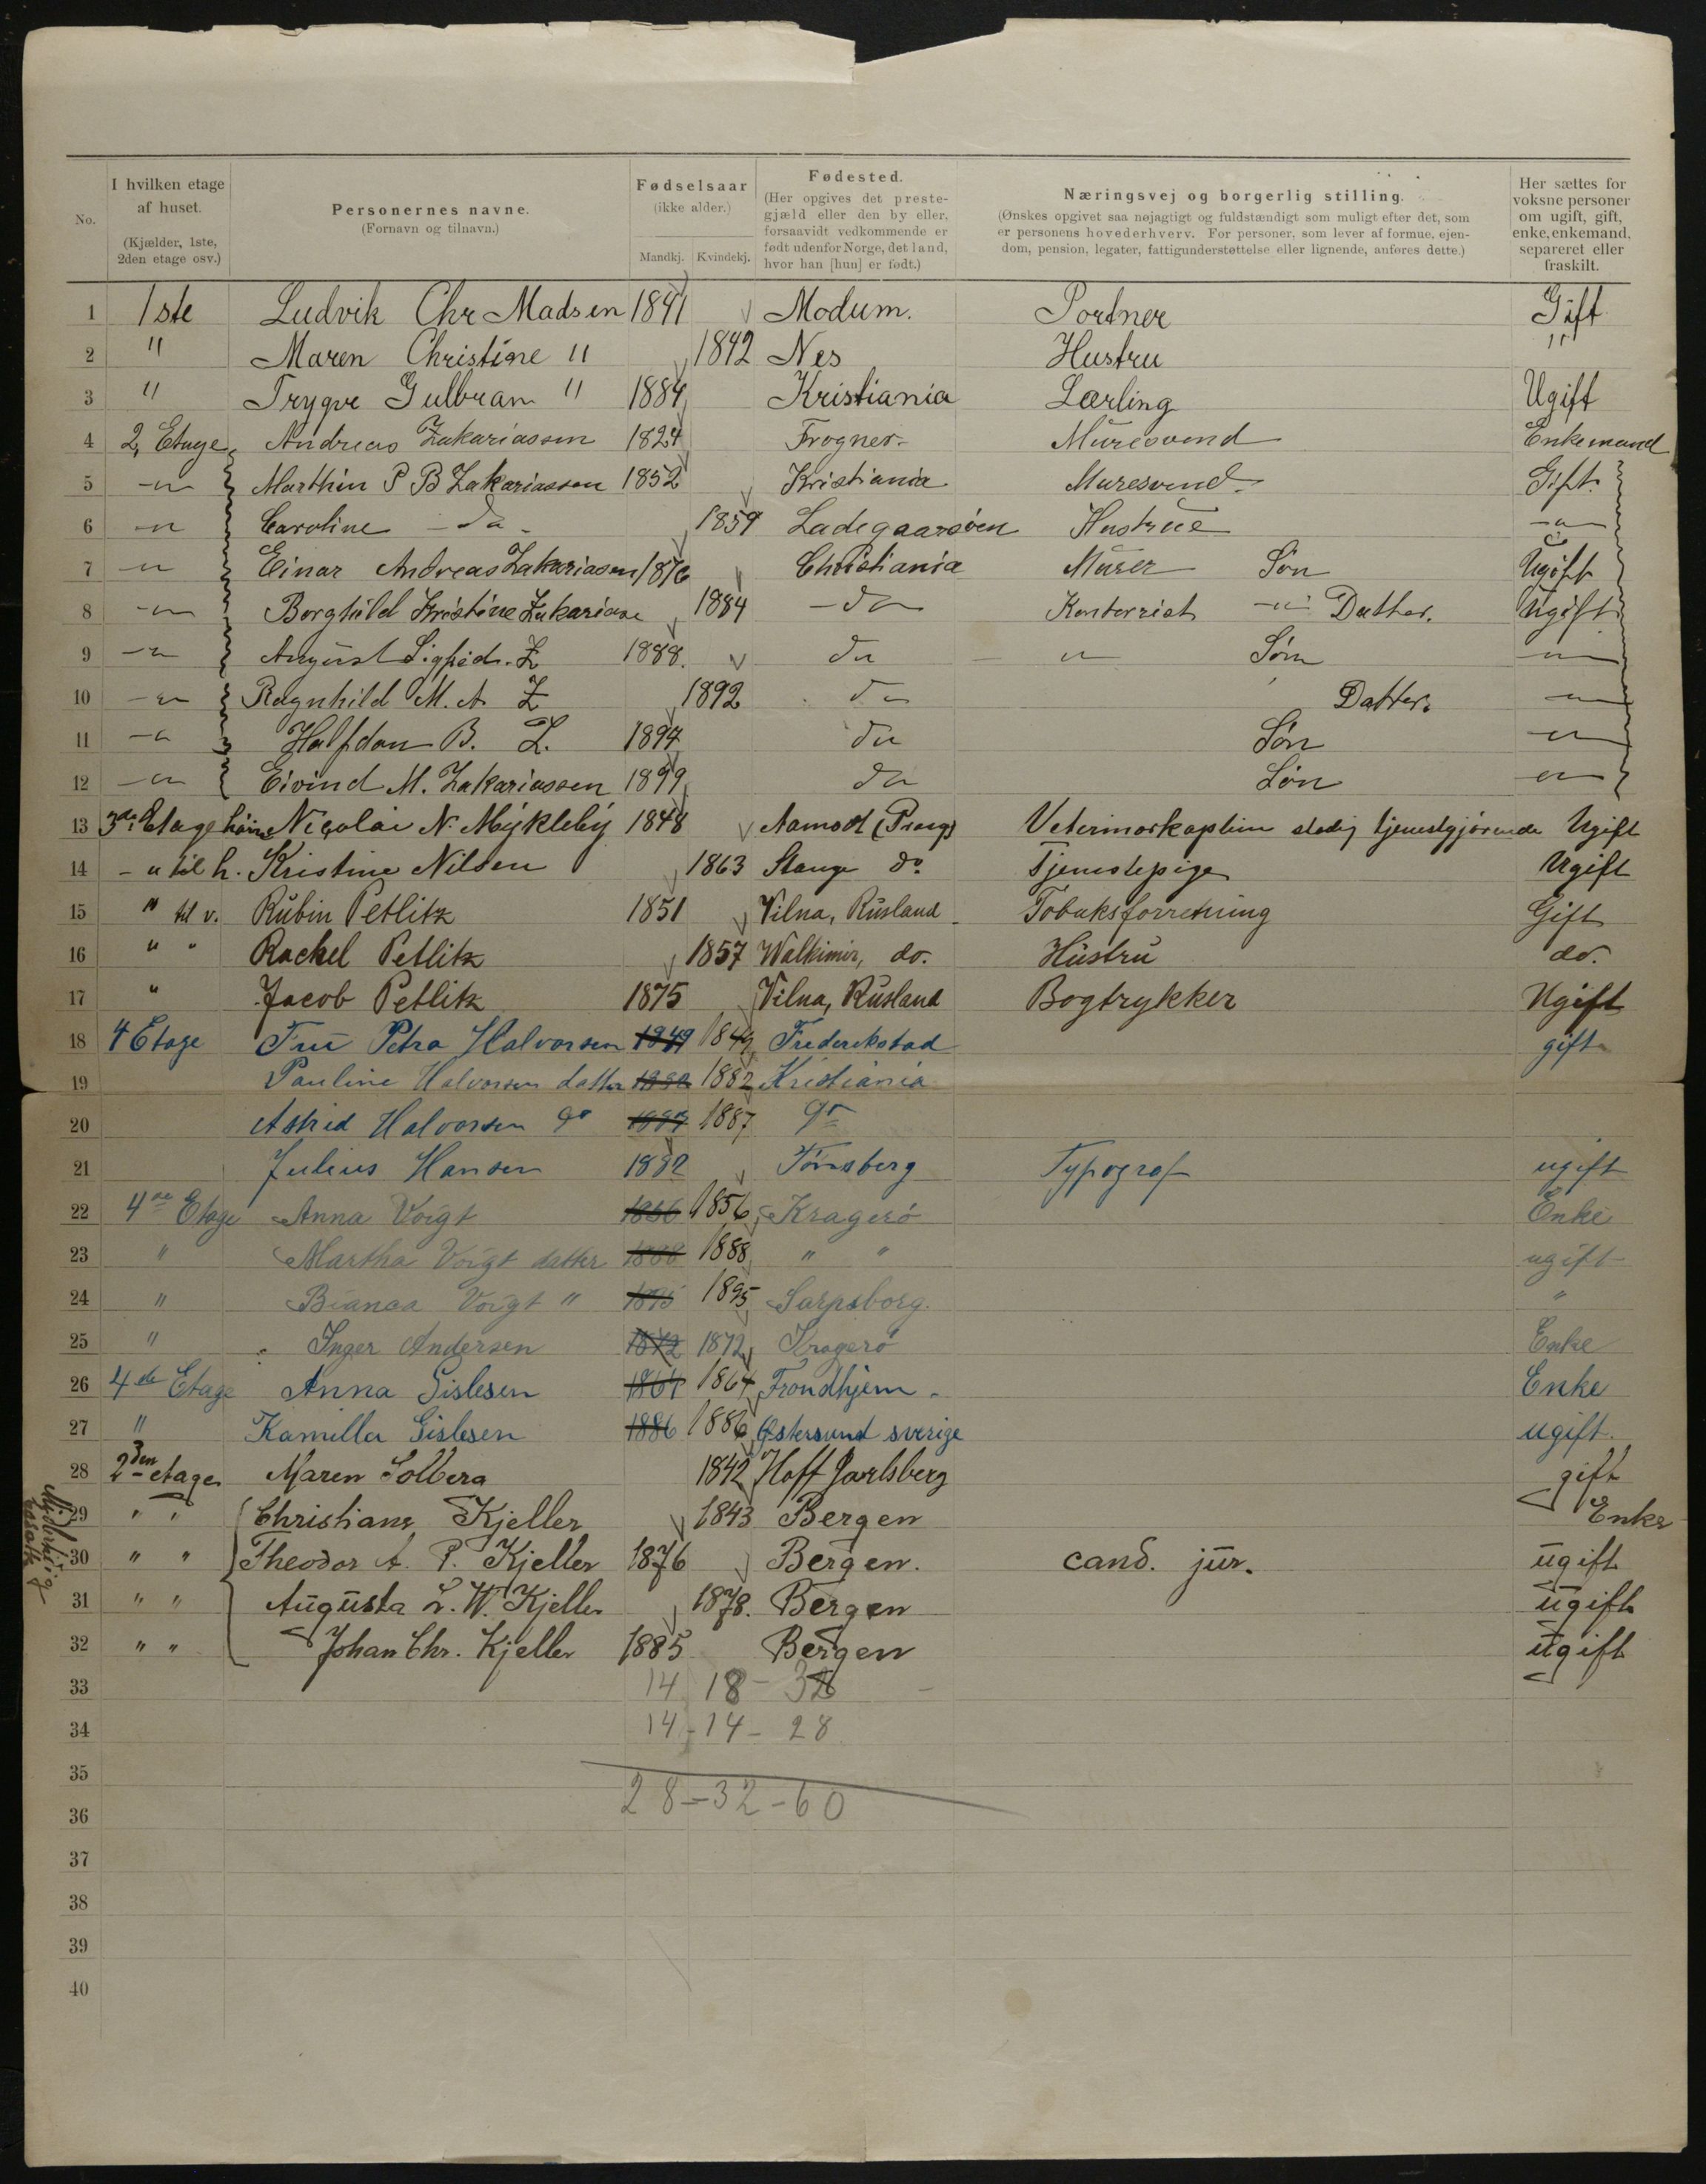 No. I hvilken etage af huset. (Kjælder, 1ste, 2den etage osv.) Personernes navne. (Fornavn og tilnavn.) Fødselsaar (ikke alder.) Mandkj. Kvindekj. Fødested. (Her opgives det prestegjæld eller den by eller, forsaavidt vedkommende er født udenfor Norge, det land, hvor han [hun] er født.) Næringsvej og borgerlig stilling. (Ønskes opgivet saa nøjagtigt og fuldstændigt som muligt efter det, som er personens hovederhverv. For personer, som lever af formue, ejendom, pension, legater, fattigunderstøttelse eller lignende, anføres dette.) Her sættes for voksne personer om ugift, gift, enke, enkemand, separeret eller fraskilt.
1 1ste Ludvik Chr Madsen 1841 Modum. Portner Gift
2 " Maren Christine " 1842 Nes Hustru "
3 " Trygve Gulbran " 1884 Kristiania Lærling Ugift
4 2, Etage Andreas Zakariassen 1824 Frogner Muresvend Enkemand
5 -"- Marthin P B Zakariassen 1852 Kristiania Muresvend Gift.
6 -"- Caroline - do - 1859 Ladegaarsöen Hustrue -"-
7 -"- Einar Andreas Zakariasen 1876 Christiania Murer Sön Ugift
8 -"- Borghild Kristine Zakariase 1884 - do Kontorrist -"- Datter. Ugift
9 -"- August Sigfred. Z 1888. do - " - Søn -"-
10 -"- Ragnhild M. A Z 1892 do Datter. -"-
11 -"- Halfdan B. Z. 1894 do Sön -"-
12 -"- Eivind M. Zakariassen 1899 do Sön -"-
13 3de Etage höire Nicolai N. Mykleby 1848 Aamodt (Præg) Veterinærkaptein stadig tjenestgjörende Ugift
14 - " til h. Kristine Nilsen 1863 Stange do. Tjenestepige Ugift
15 " til v. Rubin Petlitz 1851 Vilna, Rusland Tobaksforretning Gift
16 " " Rackel Petlitz 1857 Walkimir, do. Hustru do.
17 " Jacob Petlitz 1875 Vilna, Rusland Bogtrykker Ugift
18 4 Etage Fru Petra Halvorsen 1849 1849 Frederikstad gift
19 Pauline Halvorsen datter 1882 1882 Kristiania
20 Astrid Halvorsen do 1887 1887 do
21 Julius Hansen 1882 Tönsberg Typograf ugift
22 4de Etage Anna Voigt 1856 1856 Kragerö Enke
23 " Martha Voigt datter 1888 1888 " " ugift
24 " Bianca Voigt " 1895 1895 Sarpsborg. "
25 " Inger Andersen 1872 1872 Kragerö Enke
26 4de Etage Anna Gislesen 1864 1864 Trondhjem. Enke
27 " Kamilla Gislesen 1886 1886 Østersund sverige ugift.
28 2den etage Maren Solberg 1842 Hoff Jarlsberg gift
29 " " Christiane Kjeller 1843 Bergen Enke
30 " " Theodor A. P. Kjeller 1876 Bergen. cand. jur. ugift
31 " " Augusta L. W. Kjeller 1878. Bergen ugift
32 " " Johan Chr. Kjeller 1885 Bergen ugift
33 14 18 - 32
34 14 - 14 - 28
35
36 28 - 32 - 60
37
38
39
40